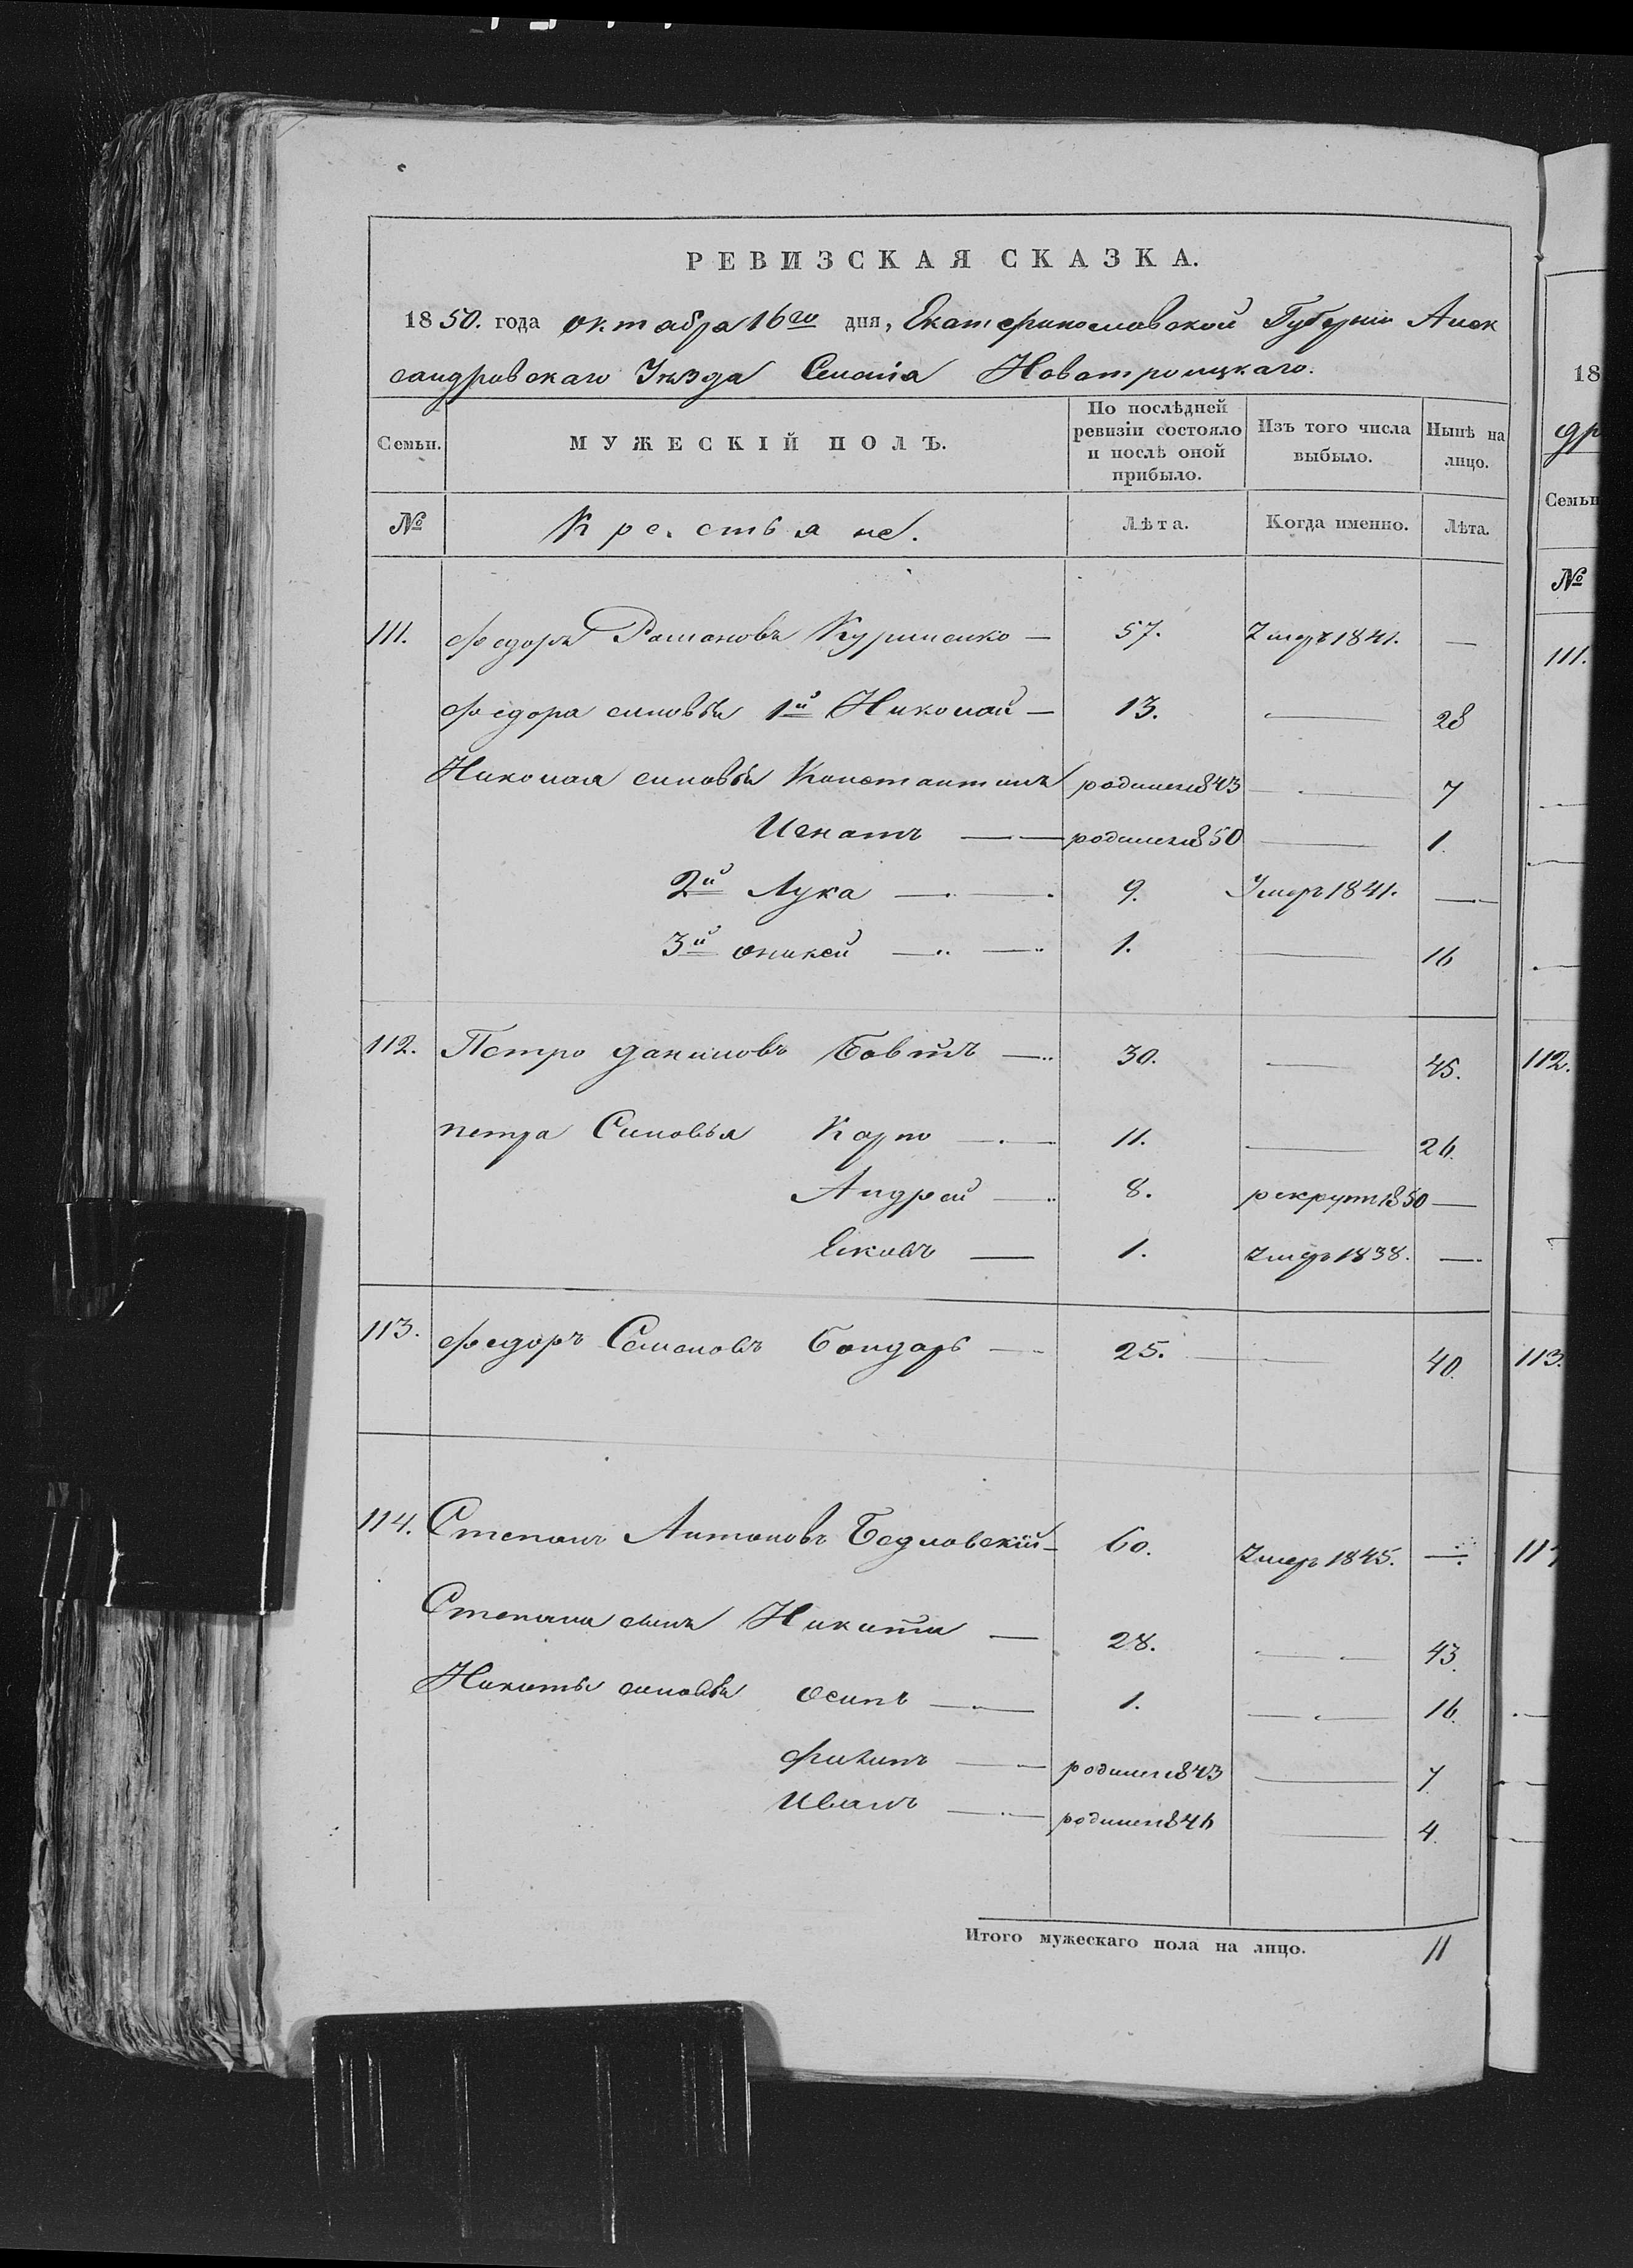 РЕВИЗСКАЯ СКАЗКА.
1850. года октабра 16го дня, Екатеринославской Губерніи Алек
сандровскаго Уезда Селенія Новотроицкаго.
Семьи. МУЖЕСКІЙ ПОЛЪ. По послѣдней ревизіи состояло и послѣ оной прибыло. Изъ того числа выбыло. Нынѣ на лицо.
№ Крестьяне. Лѣта. Когда именно. Лѣта.
111. федоръ Романовъ 57. Умеръ 1841. —
федора сыновья 1й Николай — 13. — 28
Николая сыновья Константинъ родился 1843 — 7
Игнатъ — родился 1850 — 1.
2й Лука — 9. Умеръ 1841. —
3й оникей — 1. — 16
112. Петро даниловъ — 30. — 45.
петра Сыновья Карпо — 11. — 26.
Андрей — 8. рекрутъ 1850 —
Яковъ — 1. Умеръ 1838. —
113. федоръ Семеновъ бондарь — 25. — 40.
114. Степанъ Антоновъ Бедловскій — 60. Умеръ 1845. —
Степана сынъ Никита — 28. — 43.
Никиты сыновья осипъ — 1. — 16.
филипъ — родился 1843 — 7
Иванъ — родился 1846 — 4.
Итого мужескаго пола на лицо. 11
18
др
Семьи
№
111.
112.
113.